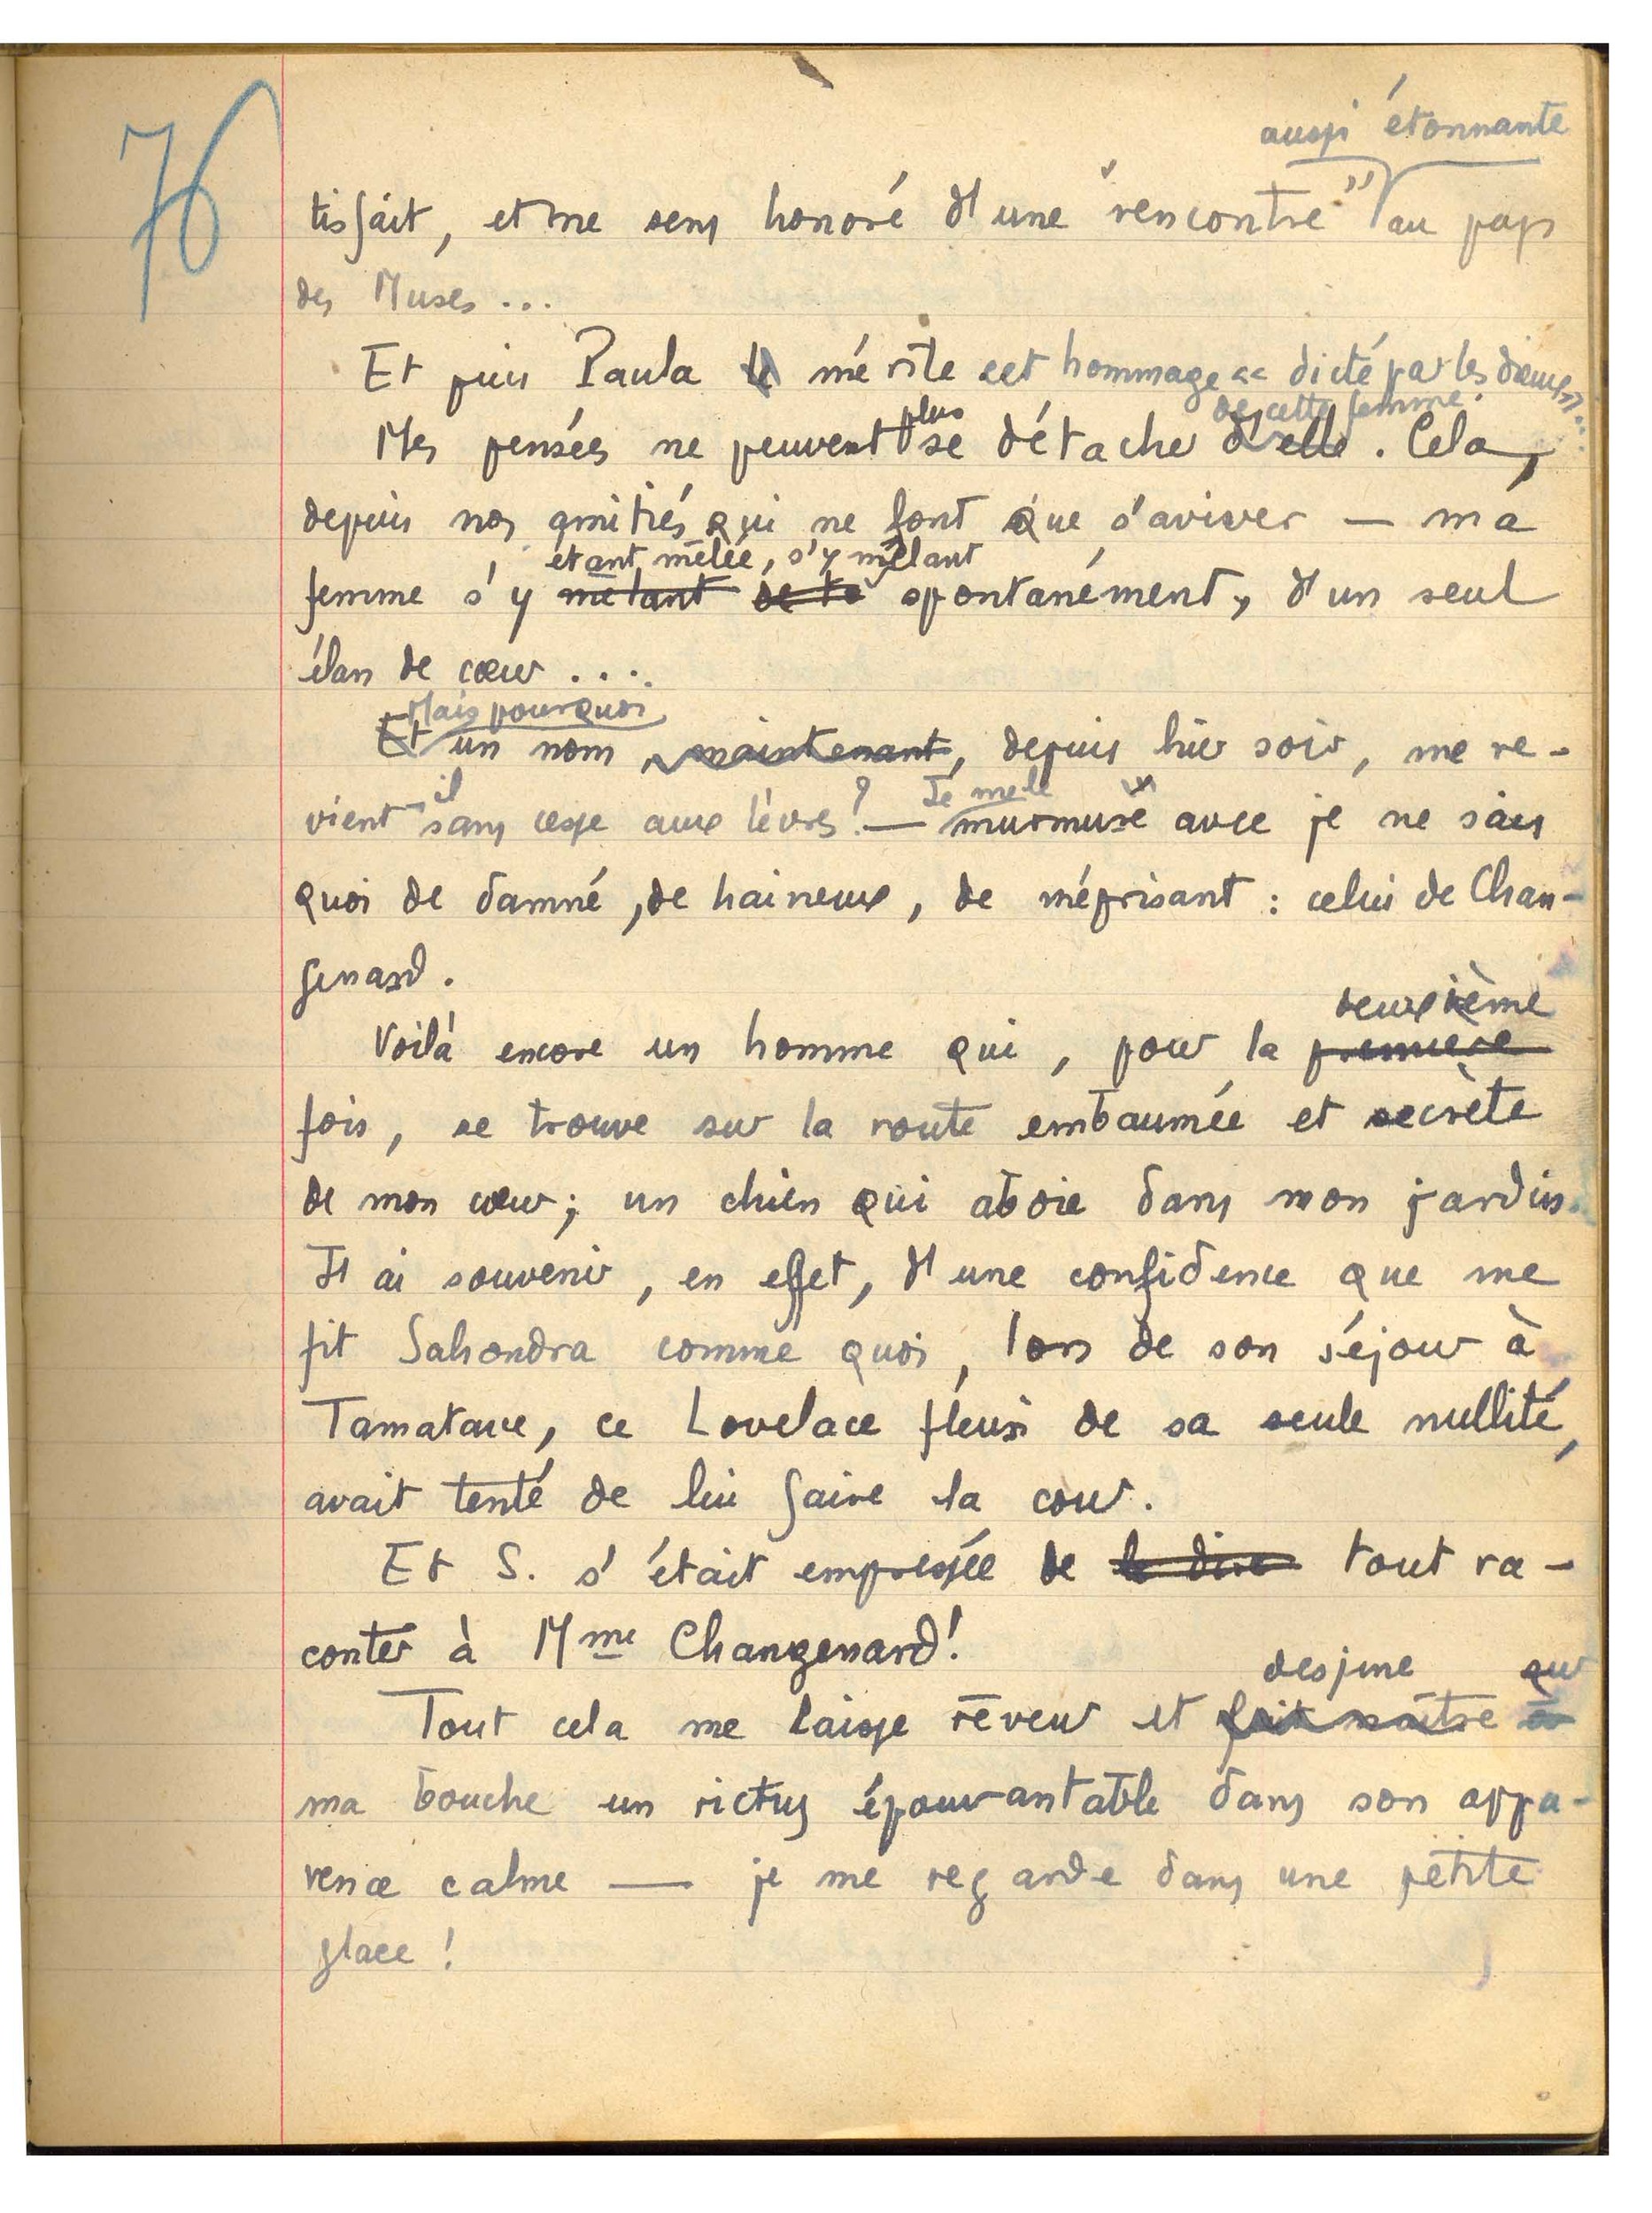 76
aussi étonnante
tisfait, et me sens honoré d'une "rencontre" au pays
des Muses ...
Et puis Paula le mérite cet hommage << dicté par les dieux >>...
plus de cette femme.
Mes pensées ne peuvent se détacher d'elle. Cela,
depuis nos amitiés qui ne font que s'aviver — ma
étant mêlée, s'y mêlant
femme s'y mêlant de to spontanément, d'un seul
élan de cœur ....
Mais pourquoi
Et un nom, maintenant, depuis hier soir, me re-
il ? Je me le
vient sans cesse aux lèvres ! — murmure avec je ne sais
quoi de damné, de haineux, de méprisant : celui de Chan-
genard.
deuxième
Voilà encore un homme qui, pour la première
fois, se trouve sur la route embaumée et secrète
de mon cœur; un chien qui aboie dans mon jardin.
J'ai souvenir, en effet, d'une confidence que me
fit Sahondra comme quoi, lors de son séjour à
Tamatave, ce Lovelace fleuri de sa seule nullité,
avait tenté de lui faire la cour.
Et S. s'était empressée de le dire tout ra-
conter à Mme Changenard!
dessine sur
Tout cela me laisse rêveur et fait naître à
ma bouche un rictus épouvantable dans son appa-
rence calme — je me regarde dans une petite
glace !